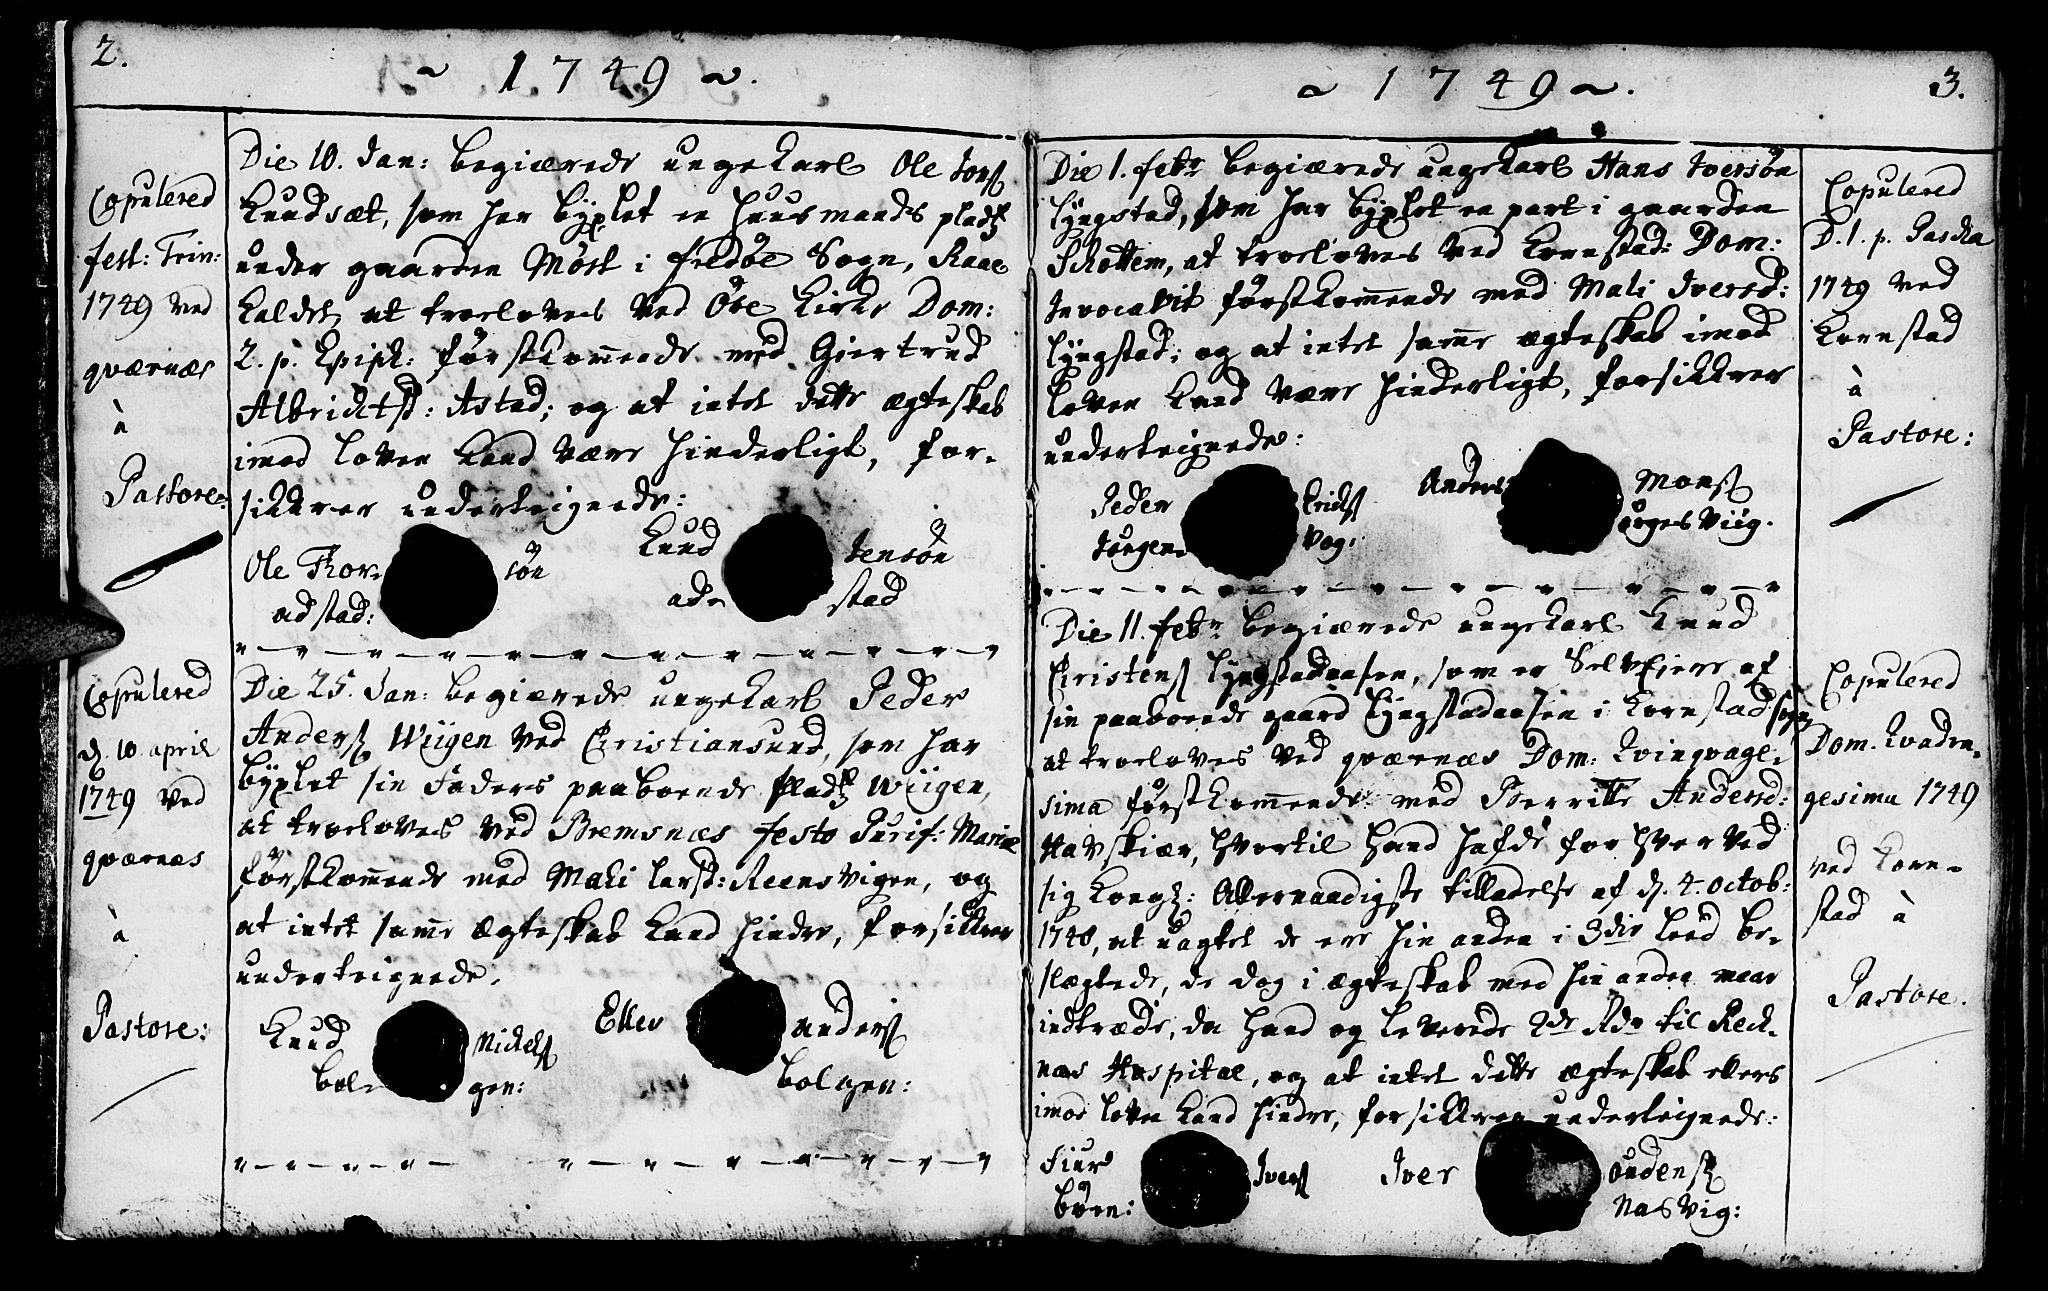 2.
~ 1749 ~.
Copulered
fest: Trin:
1749 ved
qværnæs
à
Pastore:
Die 10. Jan: begiærede ungekarl Ole Jonſ
Knudsæt, som har byxlet en Huusmands pladtz
under gaarden Møst i Fredøe Sogn, Raae
kaldet, at troeloves ved Øre Kirke Dom:
2. p. Epiph: førstkom̄ende med Giertrud
Albrichtsd: Astad; og at intet dette ægteskab
imod loven kand være hinderligt, for-
sikkrer underteignede:
Ole Thor- søn
adstad:
Knud Jensøn
ad- stad
Copulered
d. 10 april
1749 ved
qværnæs
à
Pastore:
Die 25. Jan: begiærede ungekarl Peder
Andersſ Wiigen ved Christiansund, som har
byxlet sin Faders paaboende pladtz Wiigen,
at troeloves ved Bremsnæs festo Purif: Mariæ
førstkom̄ende med Mali larsd: Reensvigen, og
at intet sam̄e Ægteskab kand hindre, forsikkrer
underteignede.
Knud Nickelsſ
bol- gen:
Ellev andersſ
bolgen:
~ 1749 ~.
3.
Die 1. febr. begiærede ungekarl Hans Iversøn
Lyngstad, som har byxlet en part i gaarden
Schottem, at troeloves ved Kornstad: Dom:
Invocavit førstkom̄ende med Mali Iversd:
Lyngstad; og at intet sam̄e ægteskab imod
loven kand være hinderligt, forsikkrer
underteignede:
Peder Erichsſ
Jørgen- vog:
Anders Monsſ
ørgesviig.
Copulered
D. 1. p. Pascha
1749 ved
Kornstad
à
Pastore:
Die 11. febr. begiærede ungekarl Knud
Christensſ Lyngstadaasen, som er Selvejere af
sin paaboende gaard Lyngstadaasen i Kornstad sogn
at troeloves ved qværnæs Dom: Qvinqvage-
sima førstkom̄ende med Berritte Andersd:
Havskiær, hvortil Hand hafde for hver ved
sig Kongl: Allernaadigste tilladelse af d. 4. octob:
1748, at uagtet de ere hin anden i 3die leed be-
slægtede, de dog i ægteskab med hin anden maae
indtræde, da hand og leverede 2de Rdr til Reck-
næs Hospital, og at intet dette ægteskab ellers
imod loven kand hindre, forsikkrer underteignede:
Siur Iversſ
bøen:
Iver oudensſ
Nasvig:
Copulered
Dom. Qvadra-
gesima 1749
ved Korn-
stad à
Pastore.